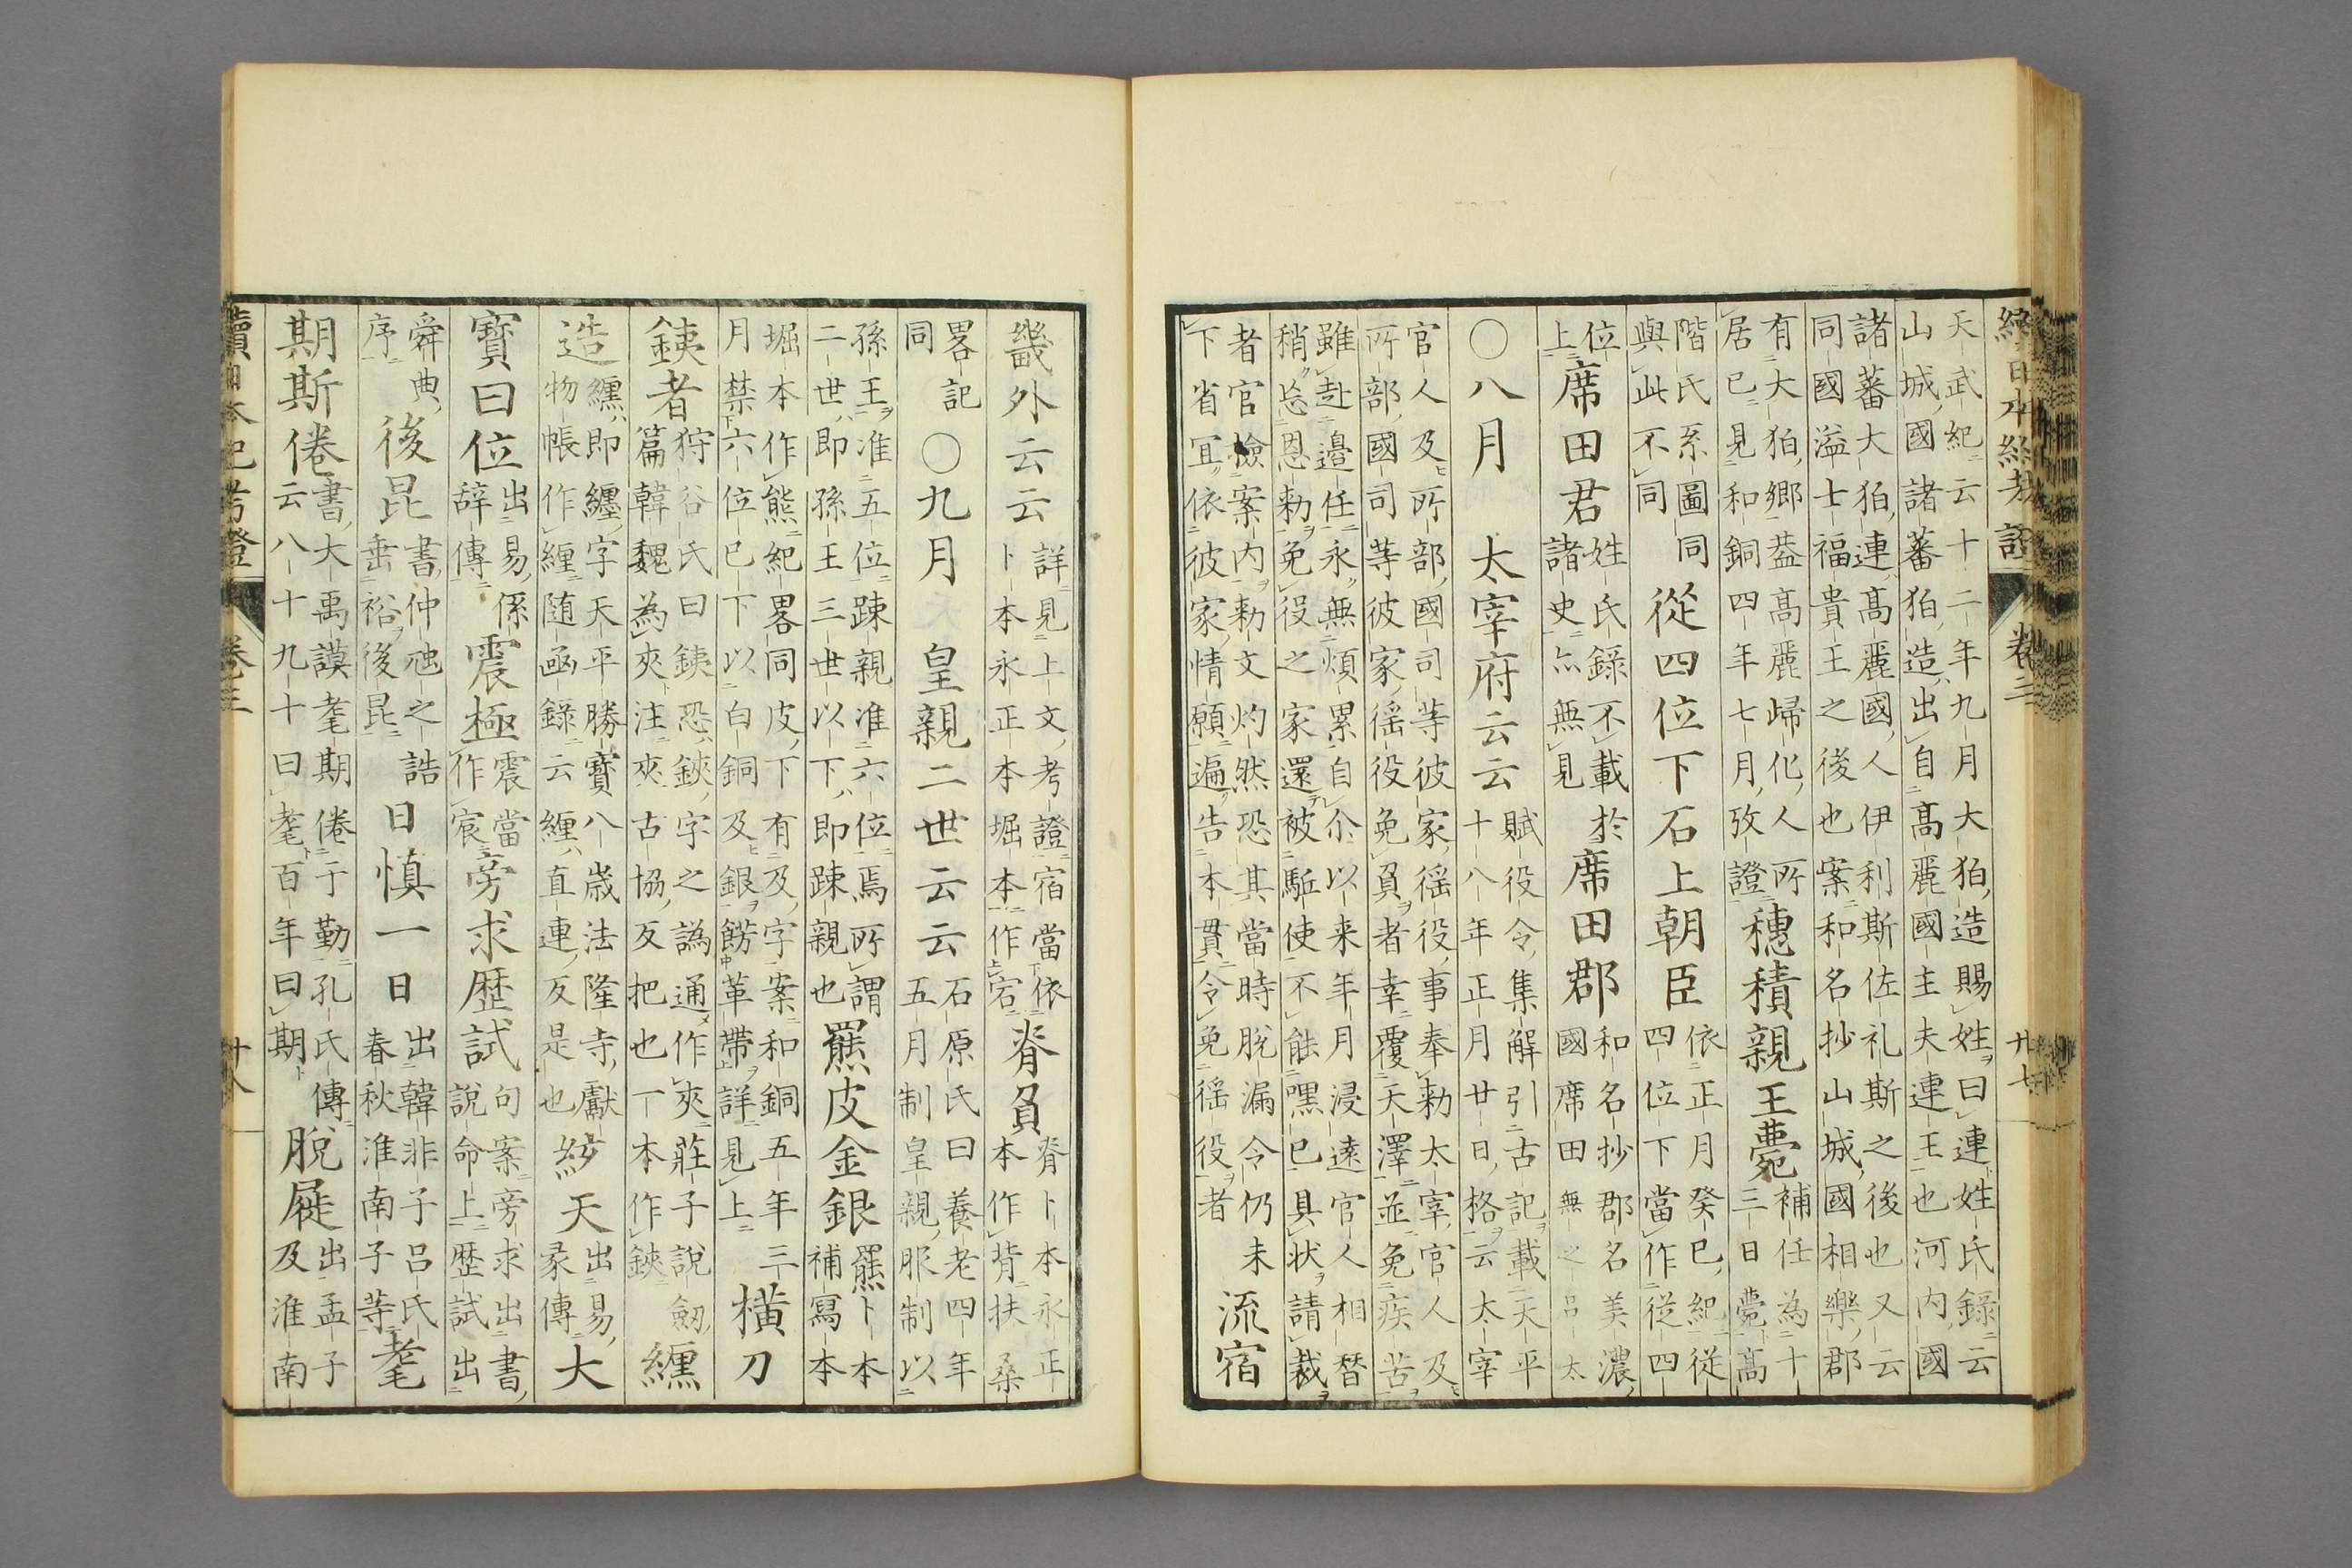 續日本紀考證 卷三 廿七
天武紀云十二年九月大狛造賜姓曰連姓氏錄云
山城國諸蕃狛造出自高麗國主夫連王也河内國
諸蕃大狛連高麗國人伊利斯佐礼斯之後也又云
同國溢士福貴王之後也案和名抄山城國相樂郡
有大狛鄉葢高麗歸化人所
居已見和銅四年七月攷證
穗積親王薨
補任為十
三日薨高
階氏系圖同
與此不同
從四位下石上朝臣
依正月癸巳紀從
四位下當作從四
位
上
席田君
姓氏錄不載於
諸史亦無見
席田郡
和名抄郡名美濃
國席田無之呂太
○八月 太宰府云云
賦役令集解引古記載天平
十八年正月廿日格云太宰
官人及所部國司等彼家徭役事奉勅太宰官人及
所部國司等彼家徭役免負者幸覆天澤並免疾苦
雖赴邉任永無煩累自尒以来年月浸遠官人相暜
稍忘恩勅免役之家還被駈使不能嘿已具状請裁
者官檢案内勅文灼然恐其當時脫漏令仍未
下省宜依彼家情願遍告本貫令免徭役者
流宿
畿外云云
詳見上文考證宿當依
卜本永正本堀本作宕
脊負
脊卜本永正
本作背扶桑
畧記
同
○九月 皇親二世云云
石原氏曰養老四年
五月制皇親服制以
孫王准五位踈親准六位焉所謂
二世即孫王三世以下即踈親也
羆皮金銀
羆卜本
補寫本
堀本作熊紀畧同皮下有及字案和銅五年三
月禁六位已下以白銅及銀餝革帶詳見上
橫刀
鋏者
狩谷氏曰鋏恐鋏字之譌通作夾莊子說劔
篇韓魏為夾注夾古協反把也一本作鋏
纏
造
纏即纒字天平勝寶八歳法隆寺獻
物帳作纒随函錄云纒直連反是也
紗 天
出易
彖傳
大
寳曰位
出易係
辞傳
震極
震當
作宸
旁求歴試
句案旁求出書
說命上歴試出
舜典
序
後昆
書仲虺之誥
垂裕後昆
日慎一日
出韓非子呂氏
春秋淮南子等
耄
期斯倦
書大禹謨耄期倦于勤孔氏傳
云八十九十曰耄百年曰期
脫屣
出孟子
及淮南
續日本紀考證 卷三 廿八